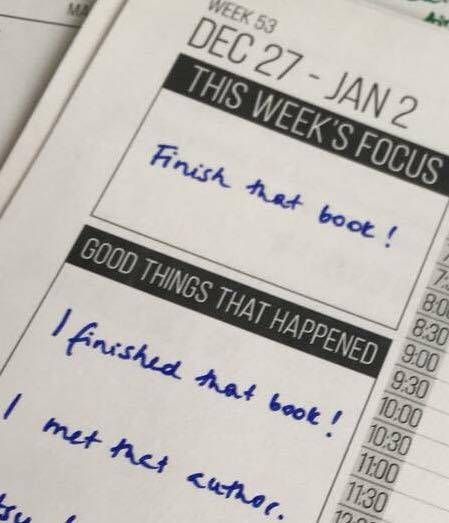 WEEK 53
DEC 27 - JAN 2
THIS WEEK'S FOCUS
Finish that book!
GOOD THINGS THAT HAPPENED
I finished that book!
I met that author.
8:30
9:00
9:30
10:00
10:30
11:00
11:30